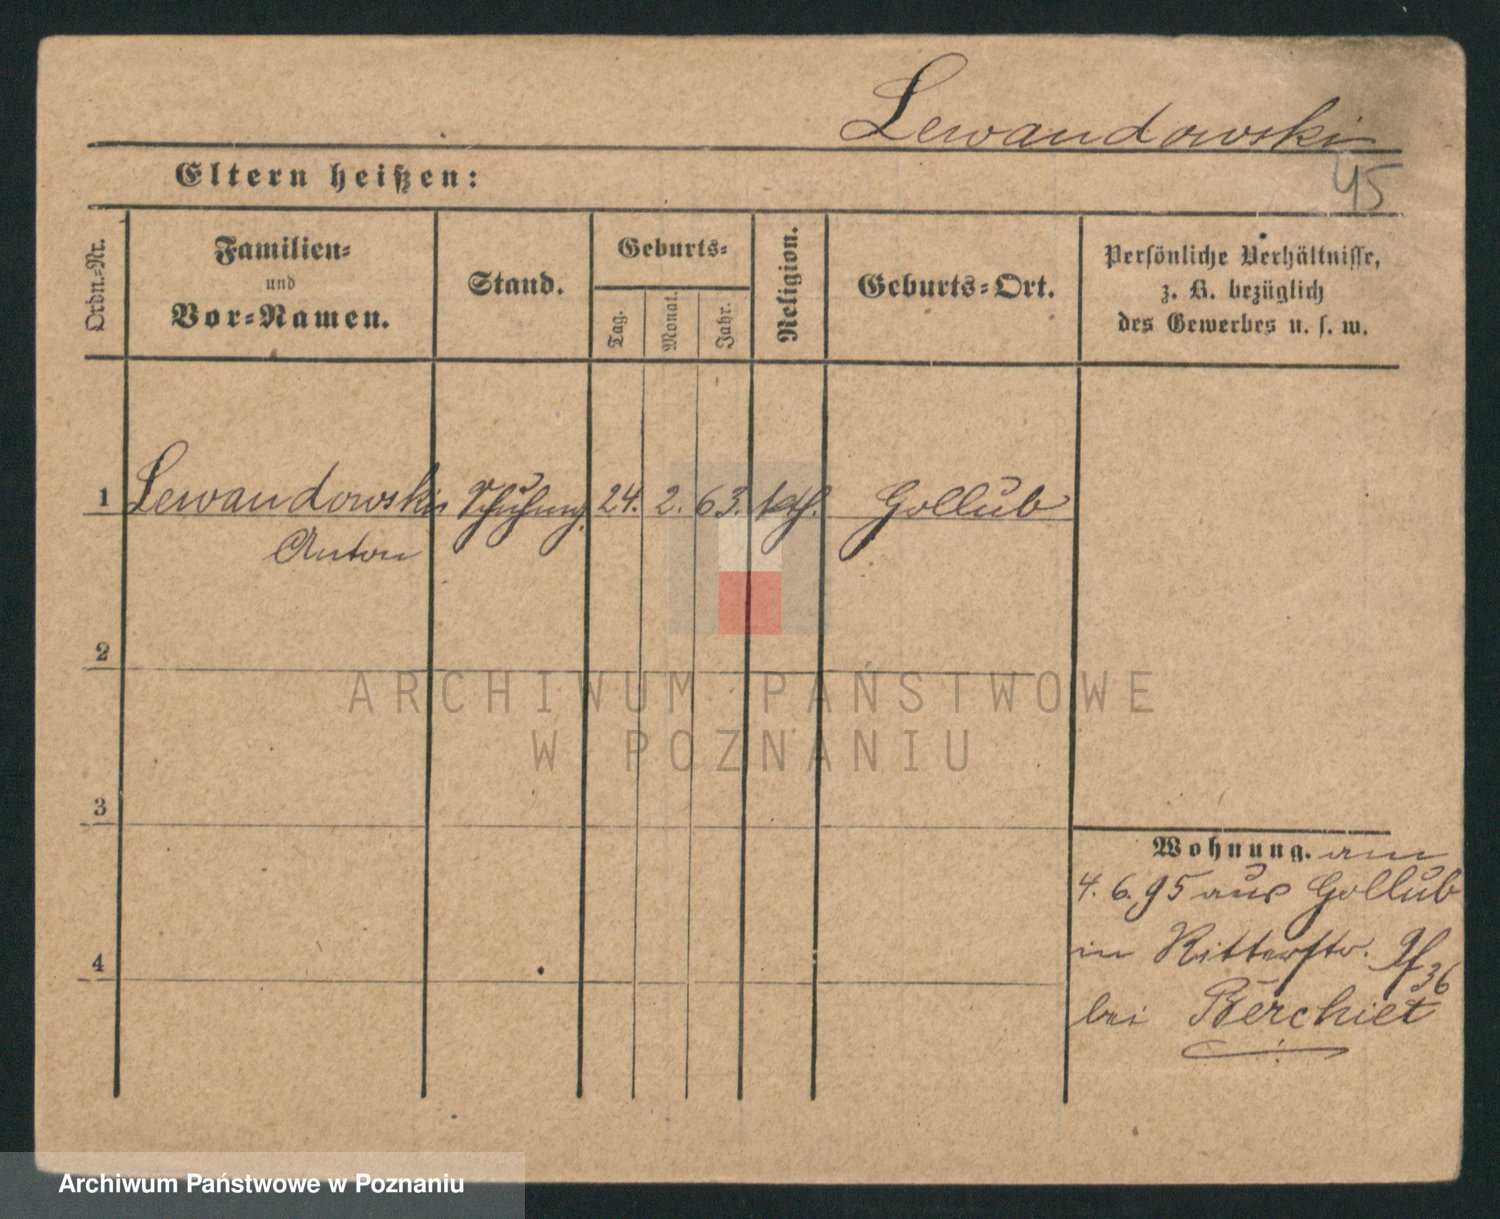 Lewandowski
45
Eltern heißen:
Ordn.-Nr.
Familien-
und
Vor-Namen.
Stand.
Geburts-
Tag.
Monat.
Jahr.
Religion.
Geburts-Ort.
Persönliche Verhältnisse,
z. B. bezüglich
des Gewerbes u. s. w.
1 Lewandowski 24. 2. 63. kth. Gollub
Anton
2
ARCHIWUM PAŃSTWOWE
W POZNANIU
3
Wohnung. am
4. 6. 95 aus Gollub
4
in Ritterstr.
36
bei Berchiet
Archiwum Państwowe w Poznaniu